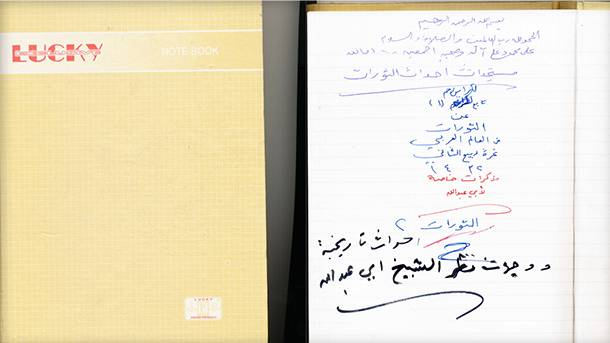 LUCKY
NOTE BOOK
LUCKY
بسم الله الرحمن الرحيم
الحمد لله رب العالمين والصلاة والسلام
على محمد وعلى آله وصحبه أجمعين
مستجدات احداث الثورات
عن
الثورات
في العالم العربي
غرة ربيع الثاني
١٤٣٢
مذكرات خاصة
لأبي عبدالله
الثورات ٢
احداث تاريخية:
ووجهات نظر الشيخ ابي عبدالله